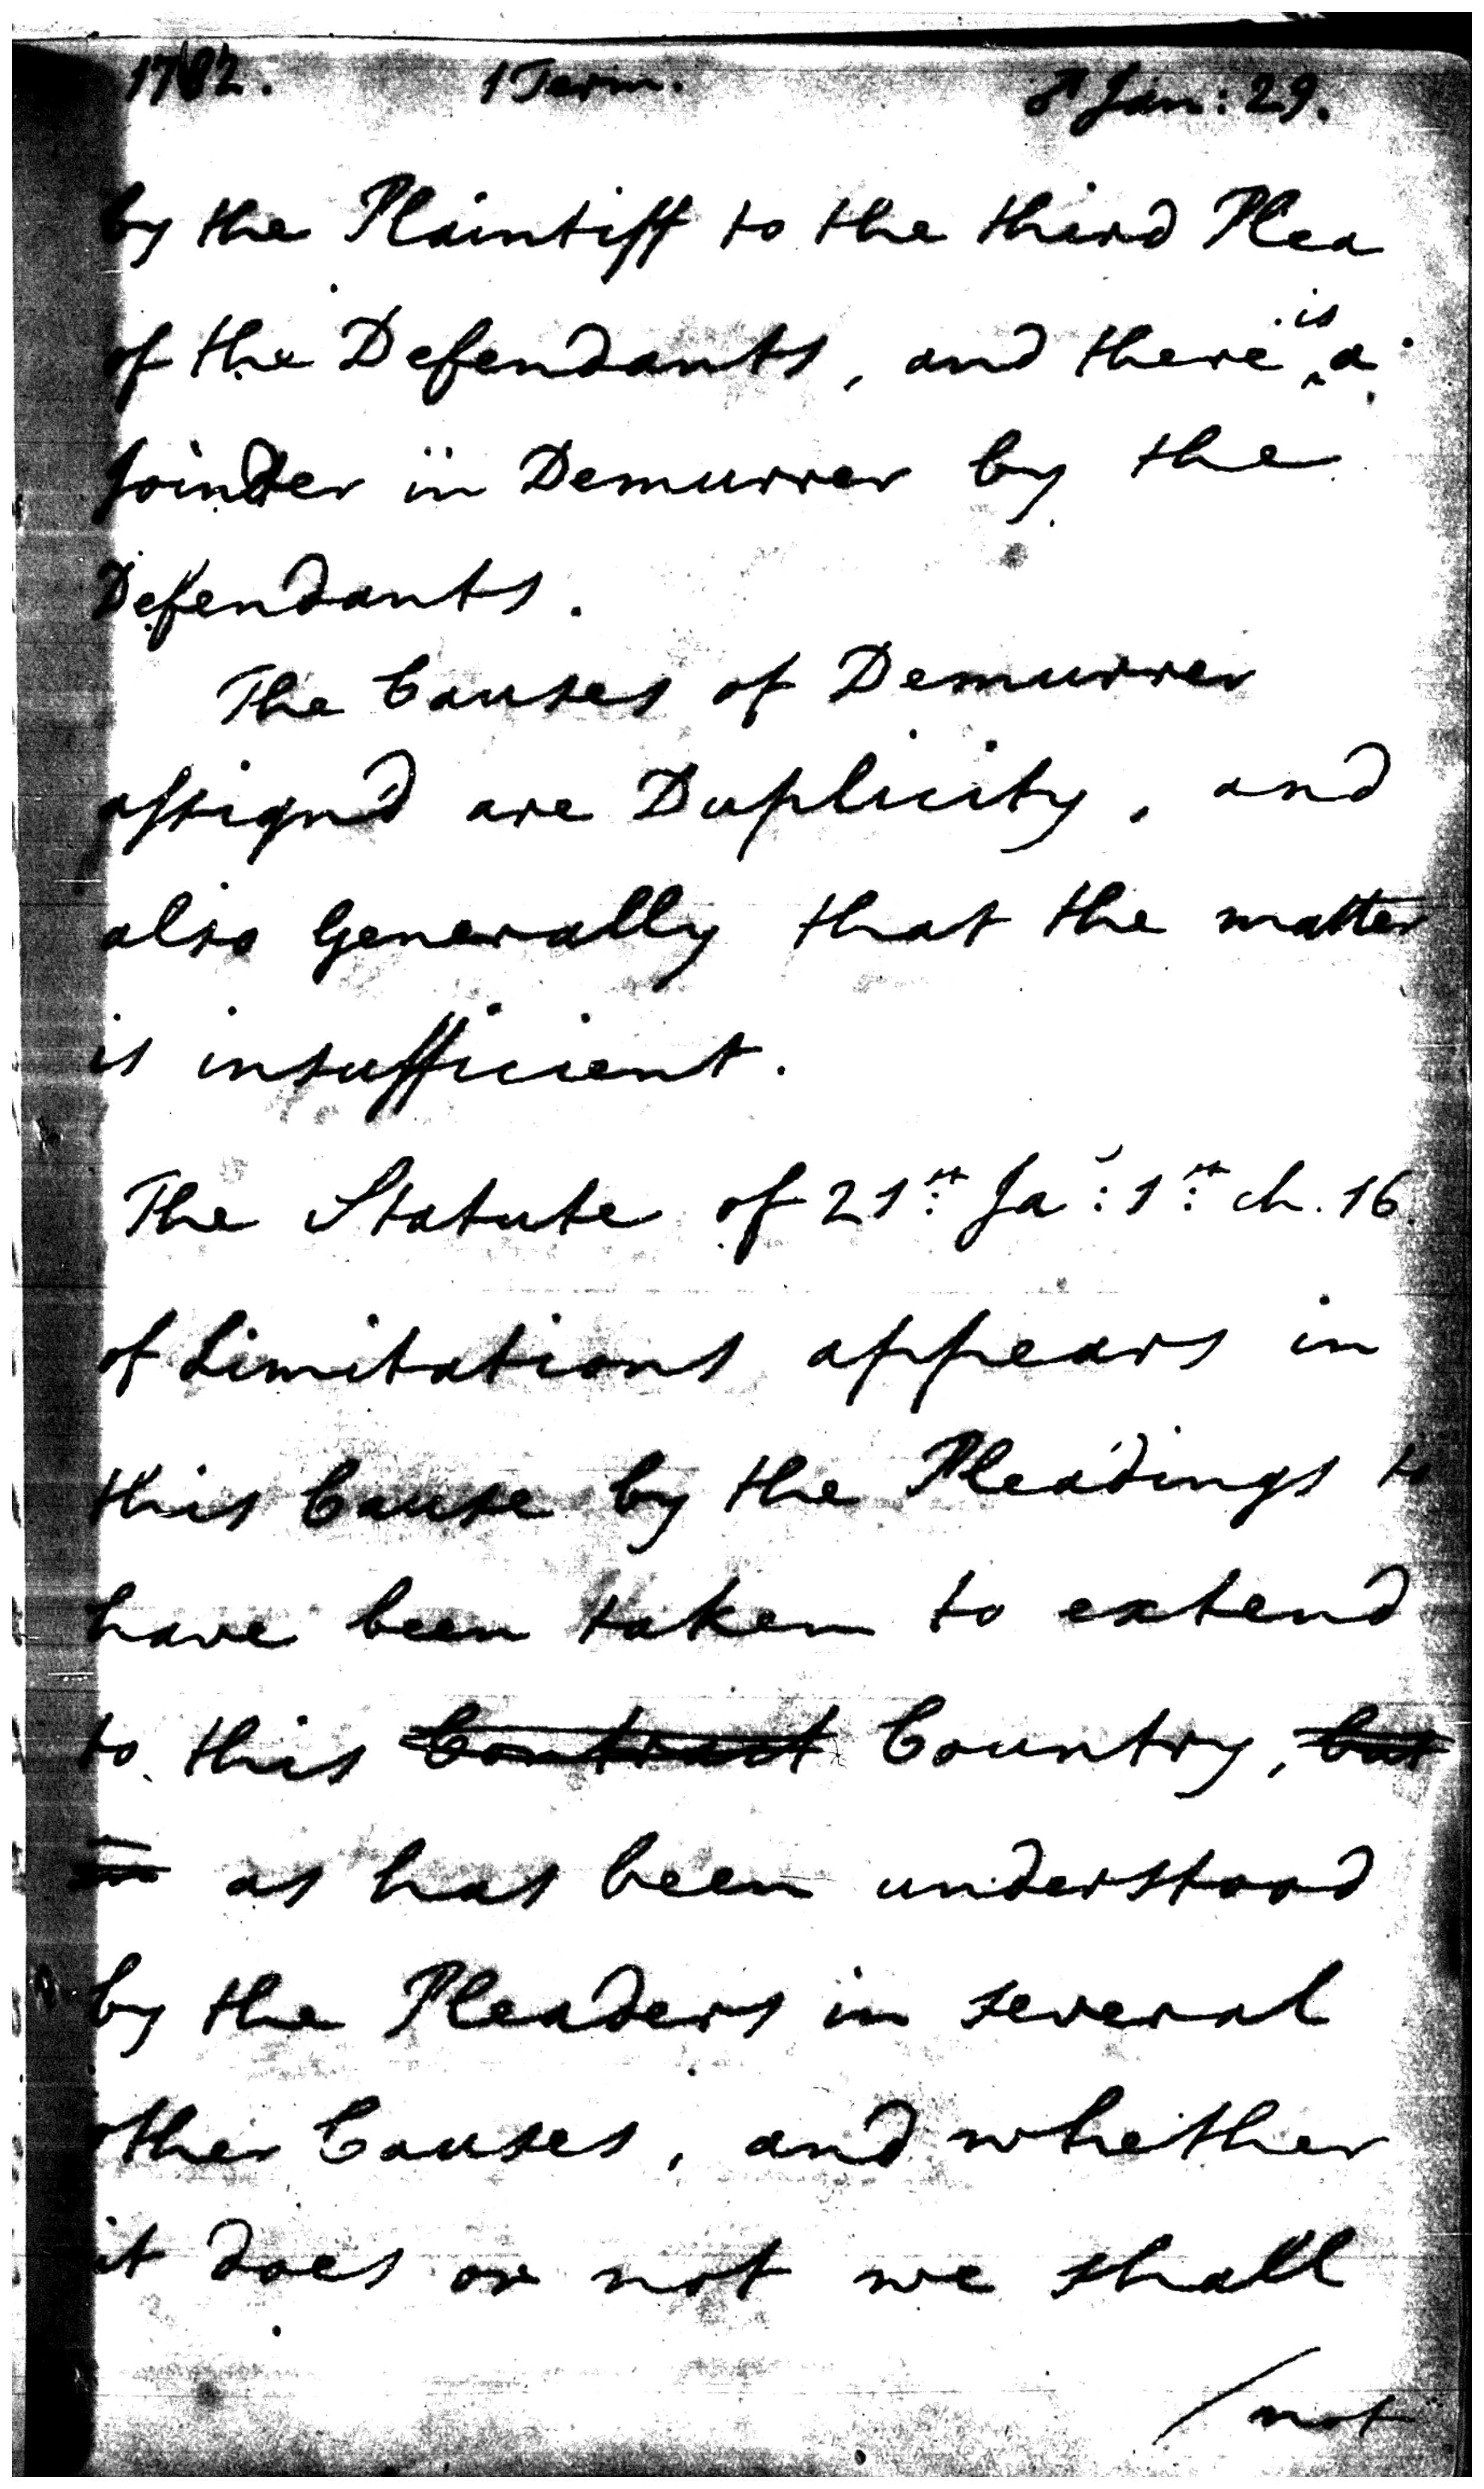 1782. 1 Term. Jan: 29.
by the Plaintiff to the third Plea
of the Defendants, and there is a
joinder in Demurrer by the
Defendants.
The Causes of Demurrer
assign'd are Duplicity, and
also Generally that the matter
is insufficient.
The Statute of 21st Ja: 1st ch. 16
of Limitations appears in
this Cause by the Pleadings to
have been taken to extend
to this Contract Country, but
as has been understood
by the Pleaders in several
other Causes, and whether
it does or not we shall
/not